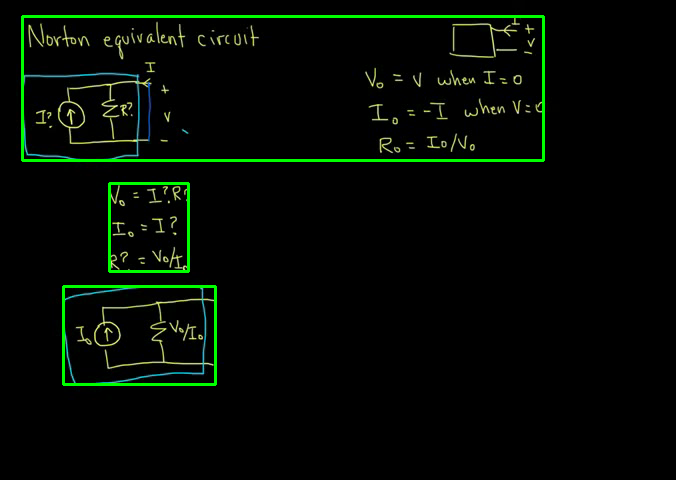 Norton equivalent circuit
I
+
V
-
I
+
V
-
I?
R?
V₀ = V when I = 0
I₀ = -I when V = 0
R₀ = I₀/V₀
V₀ = I?R?
I₀ = I?
R? = V₀/I₀
I₀
V₀/I₀